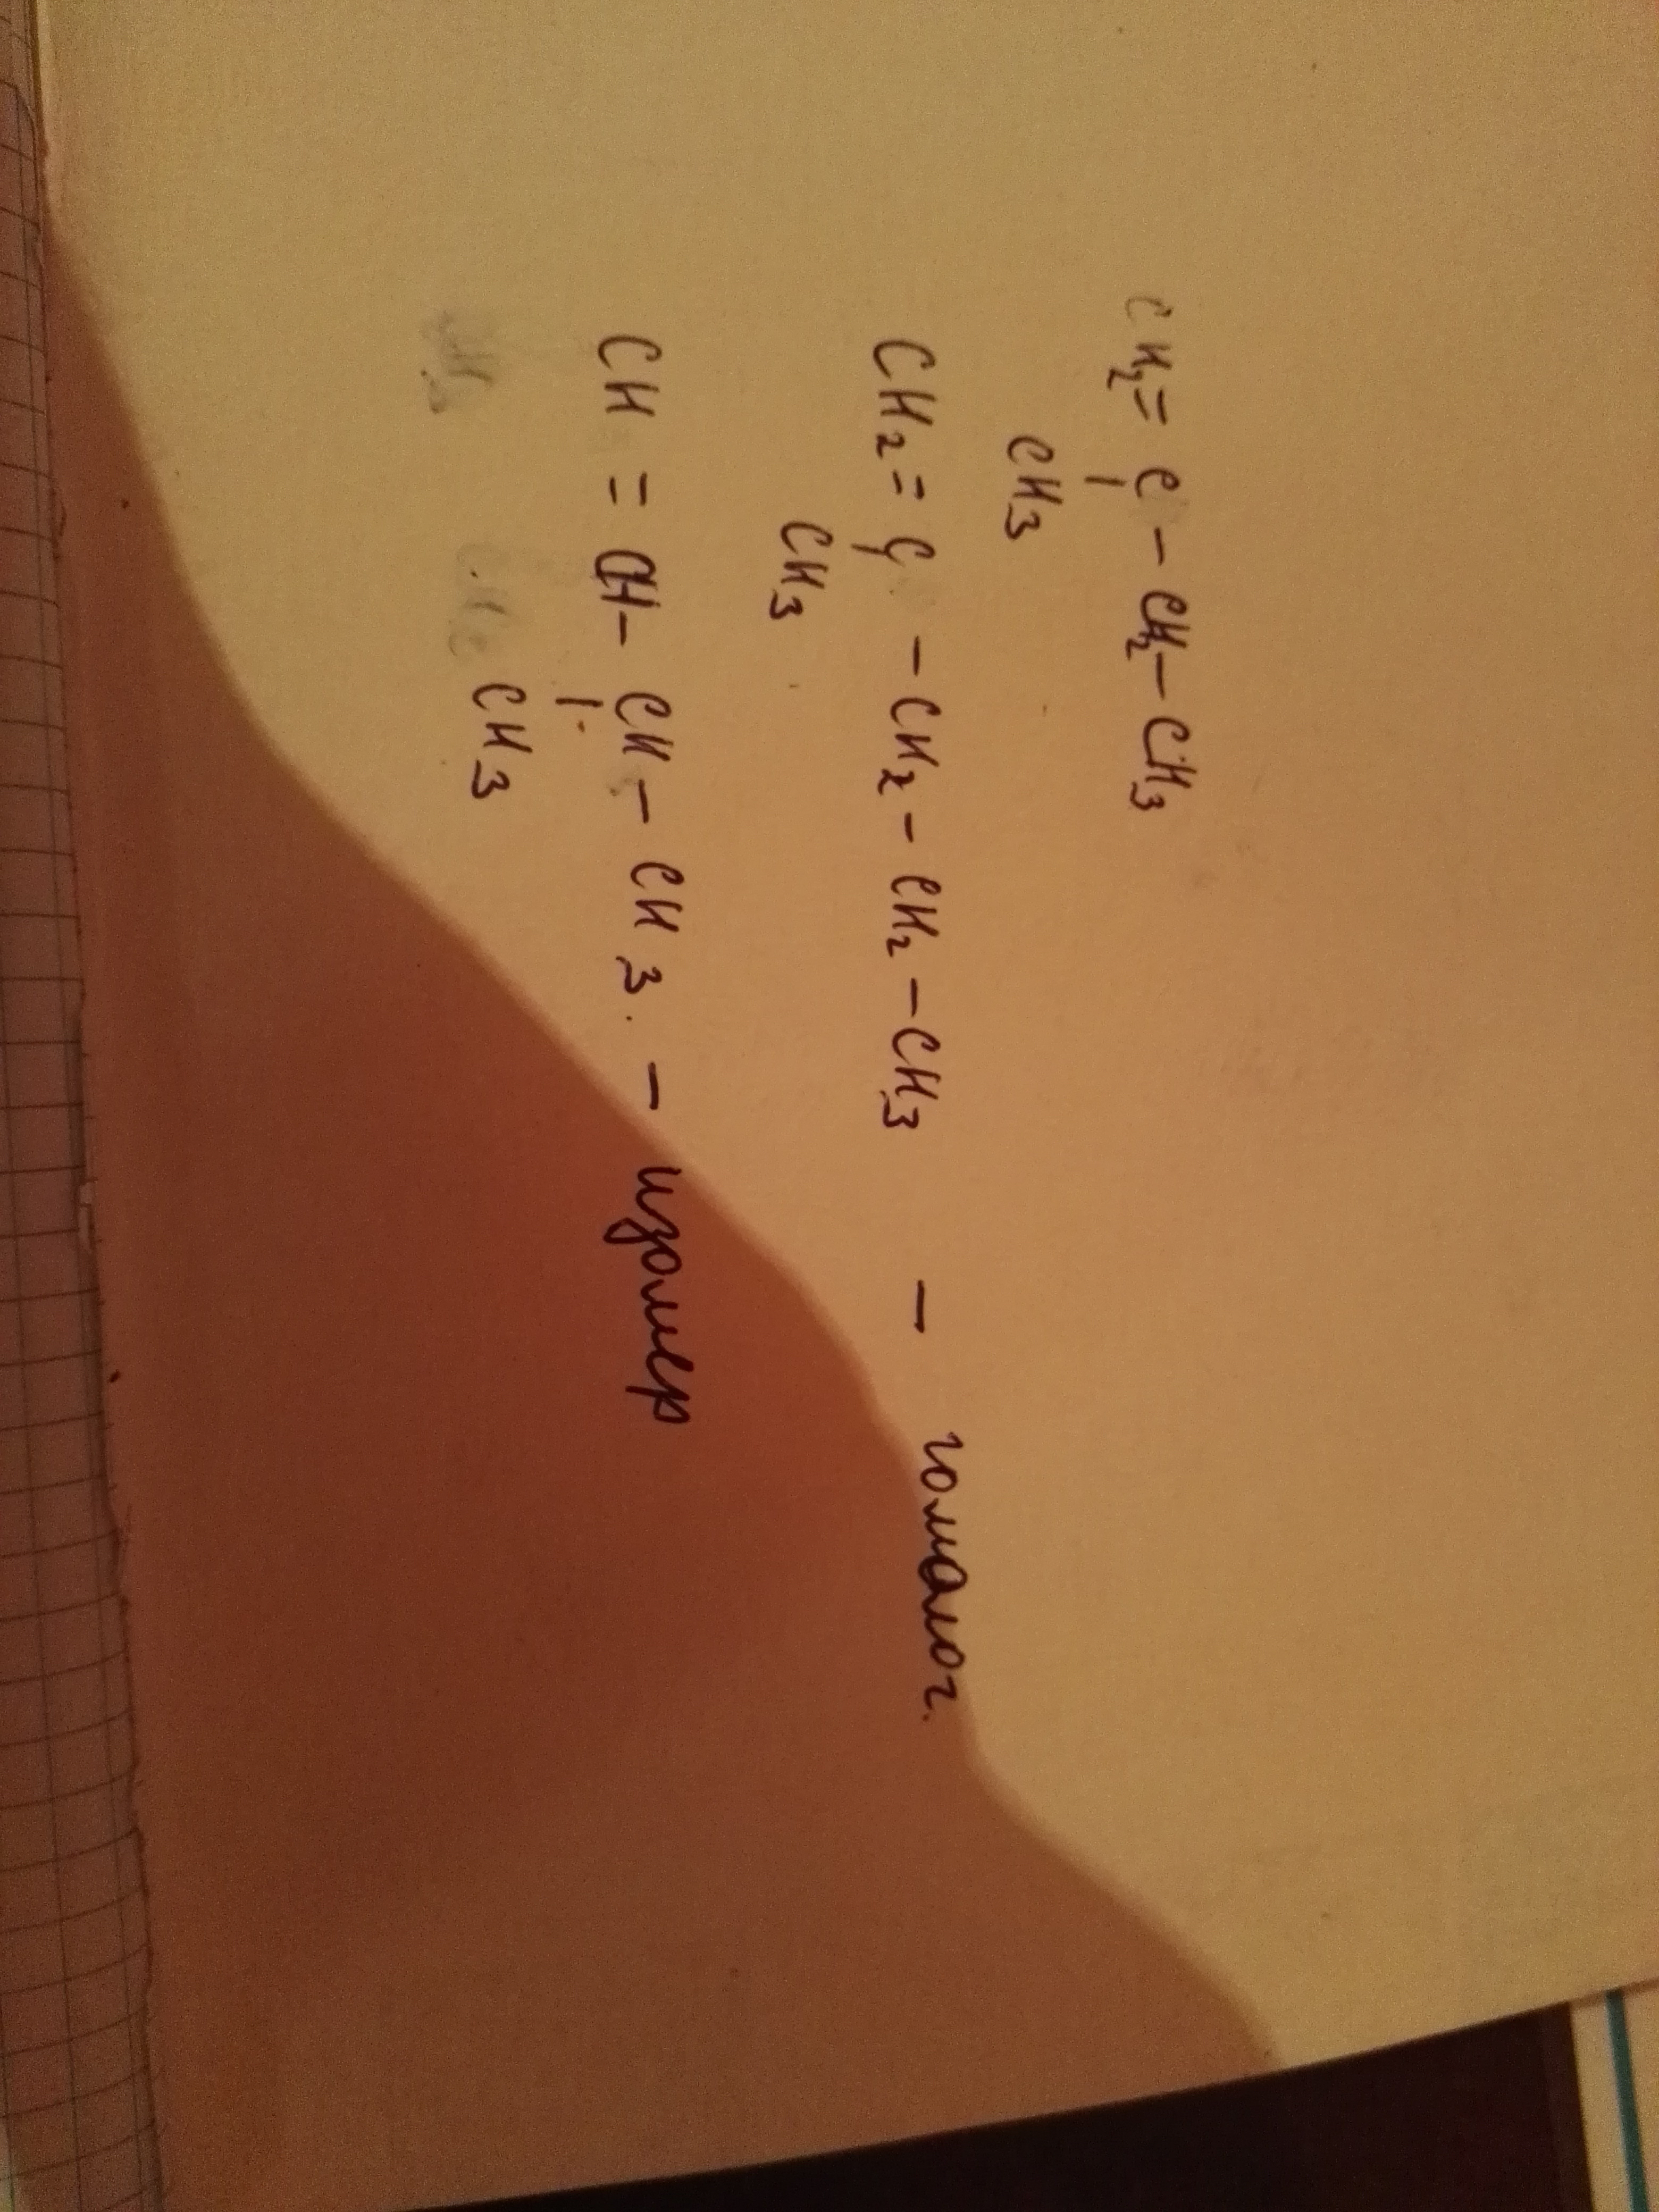 CH2=C-CH2-CH3
CH3
CH2=C-CH2-CH2-CH3 - гомолог.
CH3
CH=CH-CH-CH3. - изомер
CH3